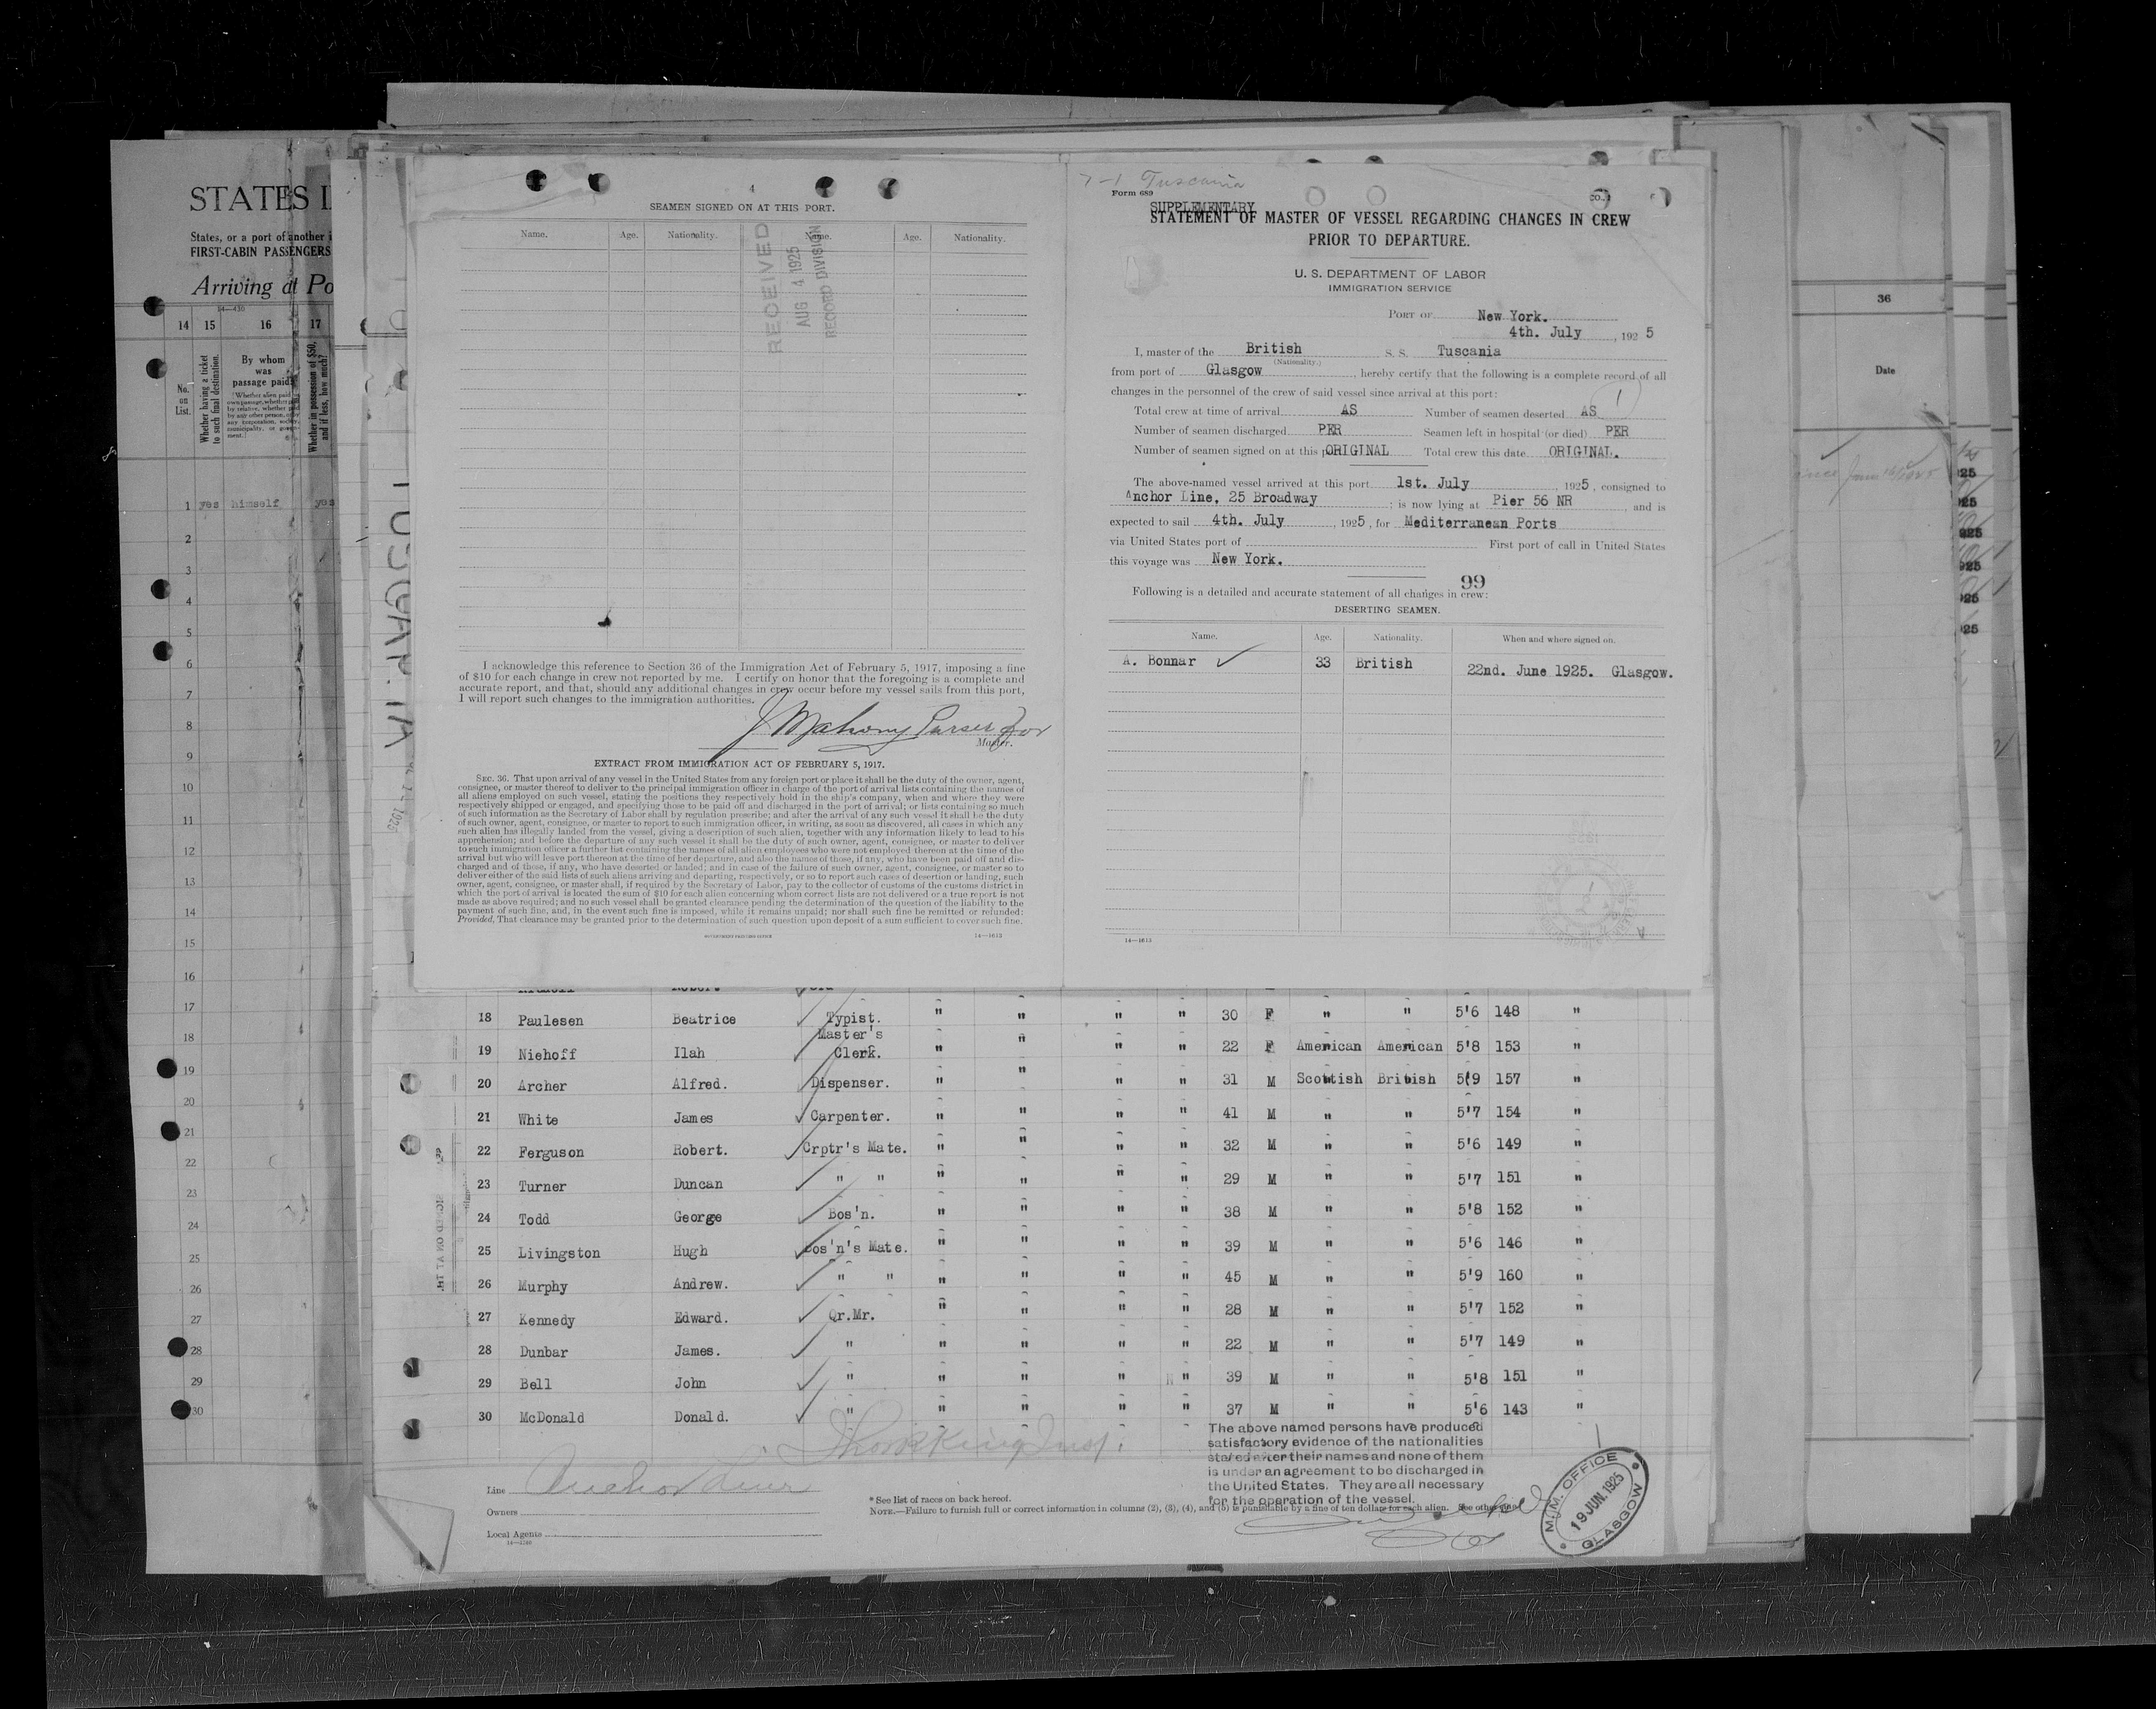 STATES I
States, or a port of another i
FIRST-CABIN PASSENGERS
Arriving at Po
14—430
14 15 16 17
No. on List.
Whether having a ticket to such final destination.
By whom was passage paid?
Whether in possession of $50, and if less, how much?
1 yes himself yes
2
3
4
5
6
7
8
9
10
11
12
13
14
15
16
17
18
19
20
21
22
23
24
25
26
27
28
29
30
4
SEAMEN SIGNED ON AT THIS PORT.
Name. Age. Nationality. Name. Age. Nationality.
RECEIVED
AUG 4 1925
RECORD DIVISION
I acknowledge this reference to Section 36 of the Immigration Act of February 5, 1917, imposing a fine
of $10 for each change in crew not reported by me. I certify on honor that the foregoing is a complete and
accurate report, and that, should any additional changes in crew occur before my vessel sails from this port,
I will report such changes to the immigration authorities.
J Mahony Purser For
Master.
EXTRACT FROM IMMIGRATION ACT OF FEBRUARY 5, 1917.
SEC. 36. That upon arrival of any vessel in the United States from any foreign port or place it shall be the duty of the owner, agent,
consignee, or master thereof to deliver to the principal immigration officer in charge of the port of arrival lists containing the names of
all aliens employed on such vessel, stating the positions they respectively hold in the ship's company, when and where they were
respectively shipped or engaged, and specifying those to be paid off and discharged in the port of arrival; or lists containing so much
of such information as the Secretary of Labor shall by regulation prescribe; and after the arrival of any such vessel it shall be the duty
of such owner, agent, consignee, or master to report to such immigration officer, in writing, as soon as discovered, all cases in which any
such alien has illegally landed from the vessel, giving a description of such alien, together with any information likely to lead to his
apprehension; and before the departure of any such vessel it shall be the duty of such owner, agent, consignee, or master to deliver
to such immigration officer a further list containing the names of all alien employees who were not employed thereon at the time of the
arrival but who will leave port thereon at the time of her departure, and also the names of those, if any, who have been paid off and dis-
charged and of those, if any, who have deserted or landed; and in case of the failure of such owner, agent, consignee, or master so to
deliver either of the said lists of such aliens arriving and departing, respectively, or so to report such cases of desertion or landing, such
owner, agent, consignee, or master shall, if required by the Secretary of Labor, pay to the collector of customs of the customs district in
which the port of arrival is located the sum of $10 for each alien concerning whom correct lists are not delivered or a true report is not
made as above required; and no such vessel shall be granted clearance pending the determination of the question of the liability to the
payment of such fine, and, in the event such fine is imposed, while it remains unpaid; nor shall such fine be remitted or refunded:
Provided, That clearance may be granted prior to the determination of such question upon deposit of a sum sufficient to cover such fine.
GOVERNMENT PRINTING OFFICE 14—1613
7-1 Tuscania
Form 689
SUPPLEMENTARY
STATEMENT OF MASTER OF VESSEL REGARDING CHANGES IN CREW
PRIOR TO DEPARTURE.
U. S. DEPARTMENT OF LABOR
IMMIGRATION SERVICE
PORT OF New York.
4th. July, 1925
I, master of the British S. S. Tuscania
(Nationality.)
from port of Glasgow, hereby certify that the following is a complete record of all
changes in the personnel of the crew of said vessel since arrival at this port:
1
Total crew at time of arrival AS Number of seamen deserted AS
Number of seamen discharged PER Seamen left in hospital (or died) PER
Number of seamen signed on at this pORIGINAL Total crew this date ORIGINAL.
The above-named vessel arrived at this port 1st. July, 1925, consigned to
Anchor Line, 25 Broadway; is now lying at Pier 56 NR, and is
expected to sail 4th. July, 1925, for Mediterranean Ports
via United States port of First port of call in United States
this voyage was New York.
99
Following is a detailed and accurate statement of all changes in crew:
DESERTING SEAMEN.
Name. Age. Nationality. When and where signed on.
A. Bonnar ✓ 33 British 22nd. June 1925. Glasgow.
14—1613
36
Date
18 Paulesen Beatrice Typist. " " " " 30 F " " 5'6 148 "
19 Niehoff Ilah Master's Clerk. " " " " 22 F American American 5'8 153 "
20 Archer Alfred. Dispenser. " " " " 31 M Scottish British 5'9 157 "
21 White James Carpenter. " " " " 41 M " " 5'7 154 "
22 Ferguson Robert. Crptr's Mate. " " " " 32 M " " 5'6 149 "
23 Turner Duncan " " " " " " 29 M " " 5'7 151 "
24 Todd George Bos'n. " " " " 38 M " " 5'8 152 "
25 Livingston Hugh Bos'n's Mate. " " " " 39 M " " 5'6 146 "
26 Murphy Andrew. " " " " " " 45 M " " 5'9 160 "
27 Kennedy Edward. Qr.Mr. " " " " 28 M " " 5'7 152 "
28 Dunbar James. " " " " " 22 M " " 5'7 149 "
29 Bell John " " " " " 39 M " " 5'8 151 "
30 McDonald Donald. " " " " " 37 M " " 5'6 143 "
The above named persons have produced
satisfactory evidence of the nationalities
stated after their names and none of them
is under an agreement to be discharged in
the United States. They are all necessary
for the operation of the vessel.
Line Anchor Line
Owners
Local Agents
14—1240
* See list of races on back hereof.
NOTE.—Failure to furnish full or correct information in columns (2), (3), (4), and (5) is punishable by a fine of ten dollars for each alien. See other side
M.M. OFFICE
19 JUN. 1925
GLASGOW